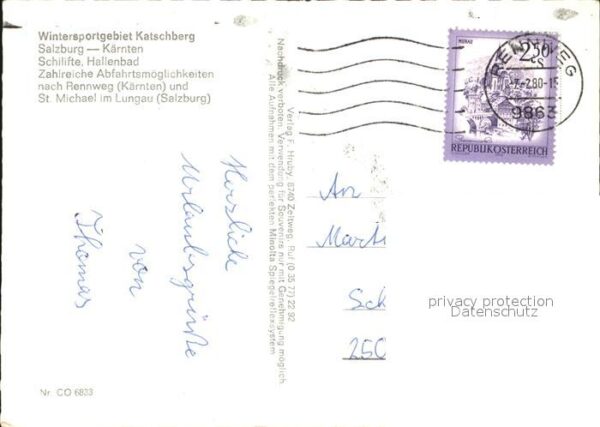 Wintersportgebiet Katschberg
Salzburg — Kärnten
Schilifte, Hallenbad
Zahlreiche Abfahrtsmöglichkeiten
nach Rennweg (Kärnten) und
St. Michael im Lungau (Salzburg)
Herzliche
Urlaubsgrüße
von
Thomas
Nr. CO 6833
Verlag F. Hruby, 8740 Zeltweg, Ruf (0 35 77) 22 92
Nachdruck verboten. Verwendung für Souvenirs nur mit Genehmigung möglich
Alle Aufnahmen mit dem perfekten Minolta Spiegelreflexsystem
MURAU
2.50
S
REPUBLIK ÖSTERREICH
RENNWEG
-7.-2.80-15
9863
An
Mart
Sch
250
privacy protection
Datenschutz